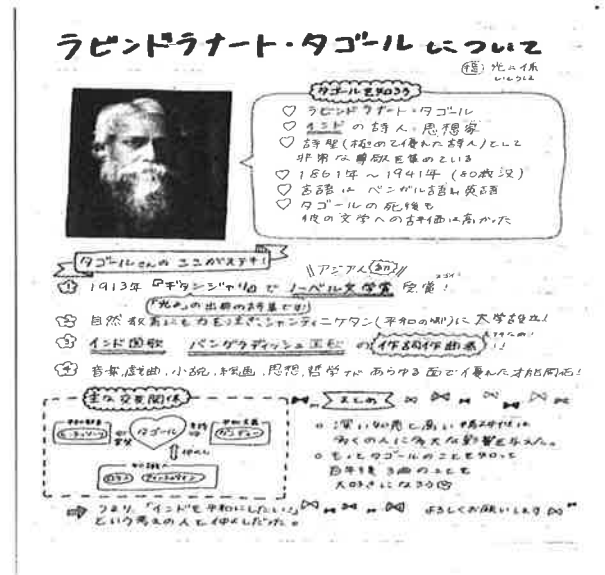 ラビンドラナート・タゴールについて
タゴールを知ろう
♡ ラビンドラナート・タゴール
♡ インドの詩人・思想家
♡ 詩聖(極めて優れた詩人)として
非常な尊敬を集めている
♡ 1861年～1941年(80歳没)
♡ 言語は ベンガル語と英語
♡ タゴールの死後も
彼の文学への評価は高かった
タゴールさんの ここがステキ!
\\アジア人初//
① 1913年『ギタンジャリ』で ノーベル文学賞 受賞!
の出典の詩集です!
② 自然教育にも力を注ぎ、シャンティニケタン(平和の郷)に 大学設立!
③ インド国歌 バングラディッシュ国歌 の作詞作曲者!
④ 音楽、戯曲、小説、絵画、思想、哲学など あらゆる面で優れた才能開花!
主な交友関係
タゴール
ガンディー
仲良し
ロマン アインシュタイン
まとめ
○ 深い知恵と高い精神性は
多くの人に多大な影響を与えた。
○ もっとタゴールのことを知って
大好きになろう
⇒ つまり、「インドを平和にしたい!」
という考えの人と仲よしだった。
よろしくお願いします